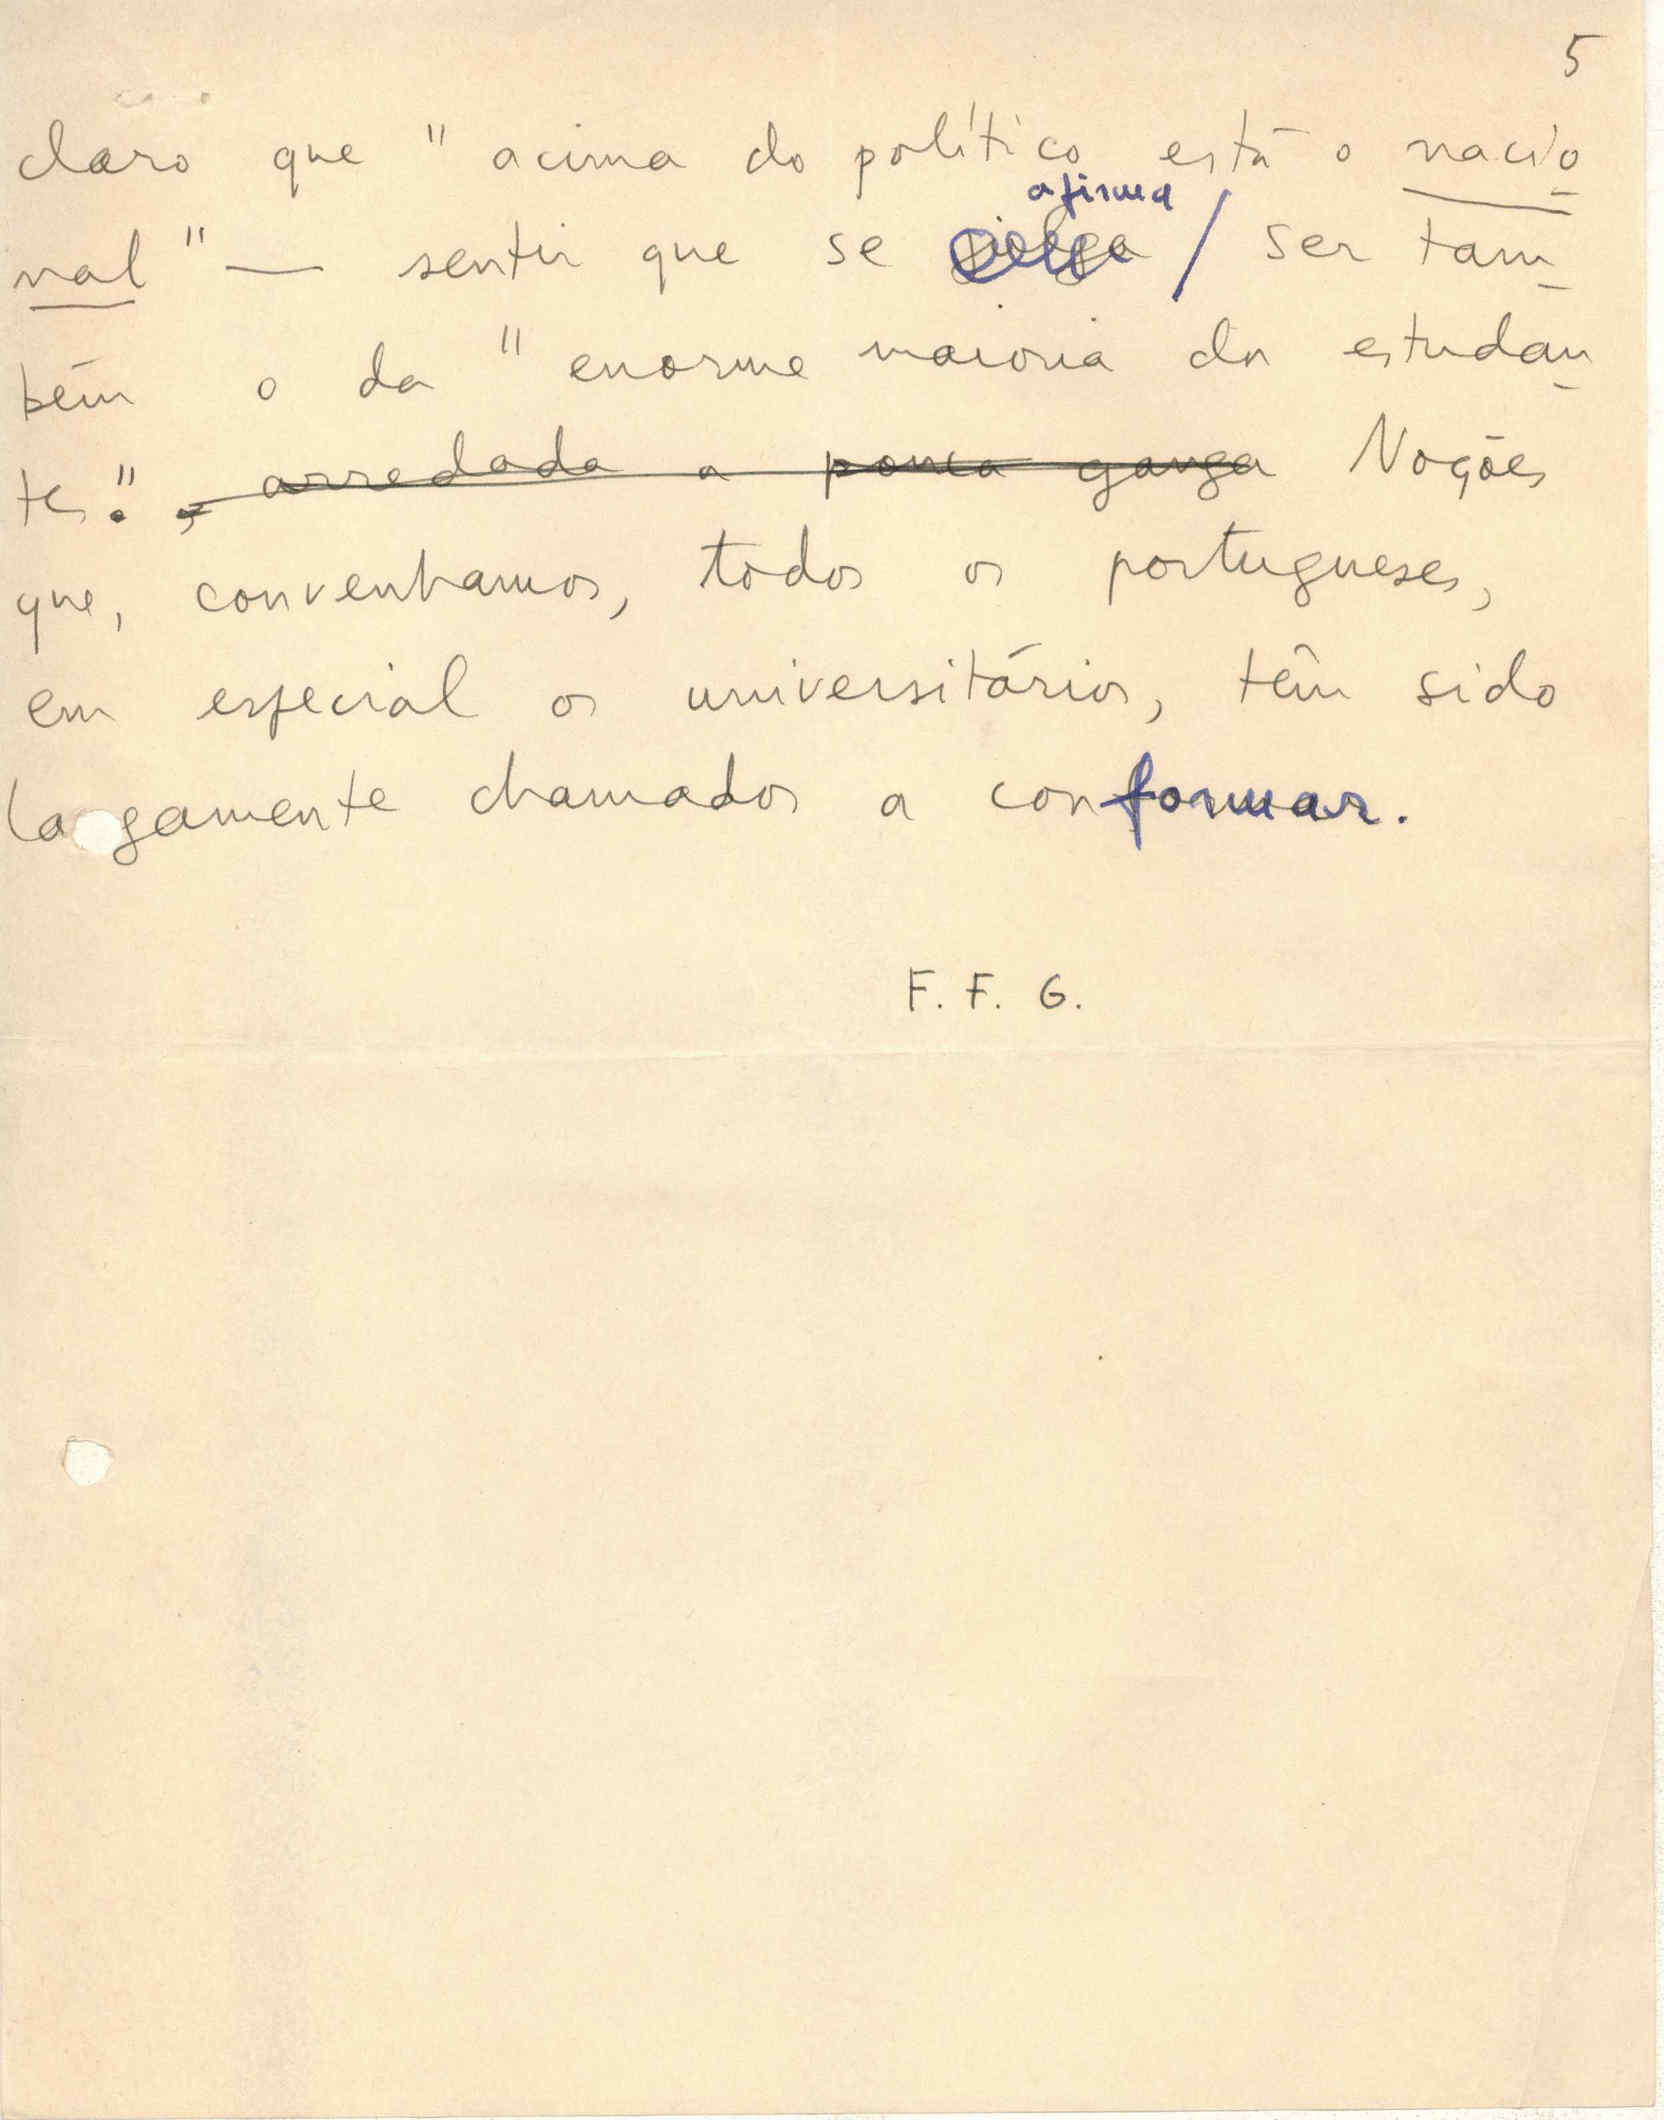 5
claro que "acima do político está o nacio
afirma
nal" — sentir que se / ser tam
bém o da "enorme maioria dos estudan
tes". , arredada a pouca ganga Noções
que, convenhamos, todos os portugueses,
em especial os universitários, têm sido
largamente chamados a conformar.
F. F. G.